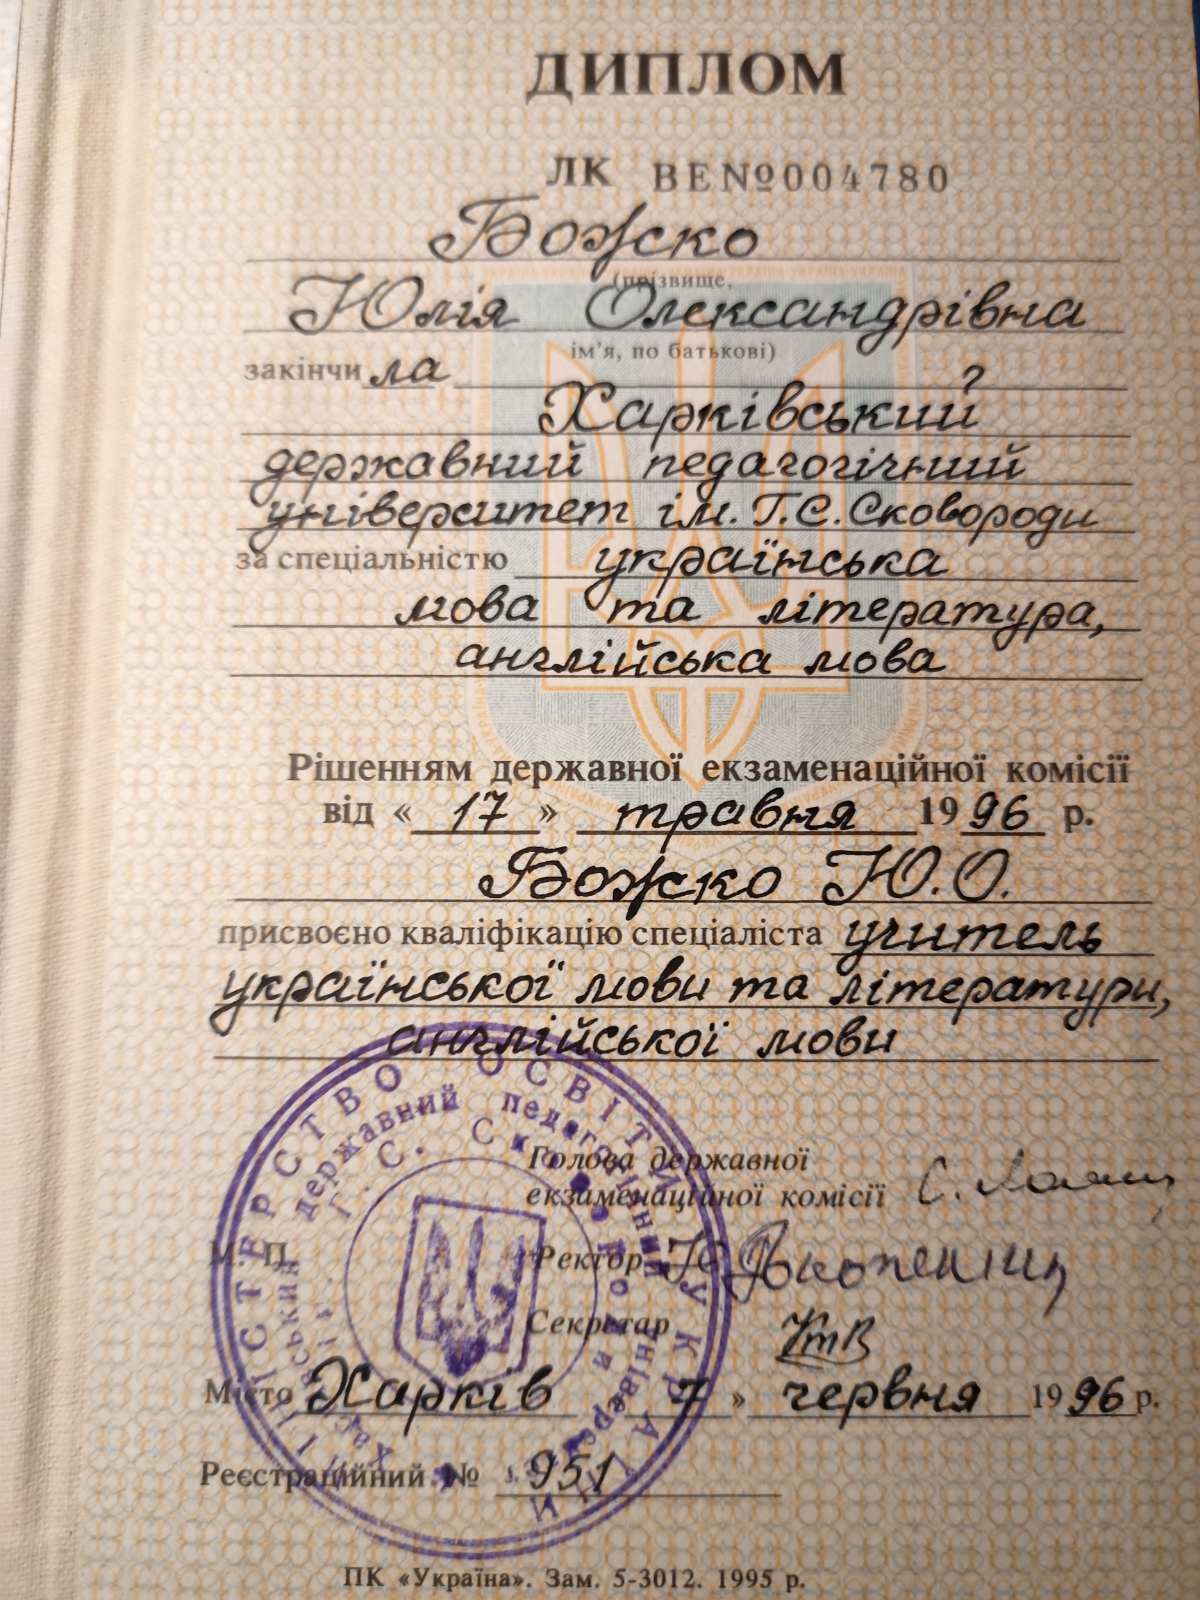 ДИПЛОМ
ЛК ВЕ№004780
Божко
(прізвище,
Юлія Олександрівна
ім'я, по батькові)
закінчила
Харківський
державний педагогічний
університет ім. Г.С. Сковороди
за спеціальністю українська
мова та література,
англійська мова
Рішенням державної екзаменаційної комісії
від «17» травня 1996 р.
Божко Ю.О.
присвоєно кваліфікацію спеціаліста учитель
української мови та літератури,
англійської мови
Голова державної
екзаменаційної комісії
М. П. Ректор
Секретар
Місто Харків 7» червня 1996 р.
Реєстраційний № 951
МІНІСТЕРСТВО ОСВІТИ УКРАЇНИ
Харківський державний педагогічний університет
ім. Г. С. Сковороди
ПК «Україна». Зам. 5-3012. 1995 р.